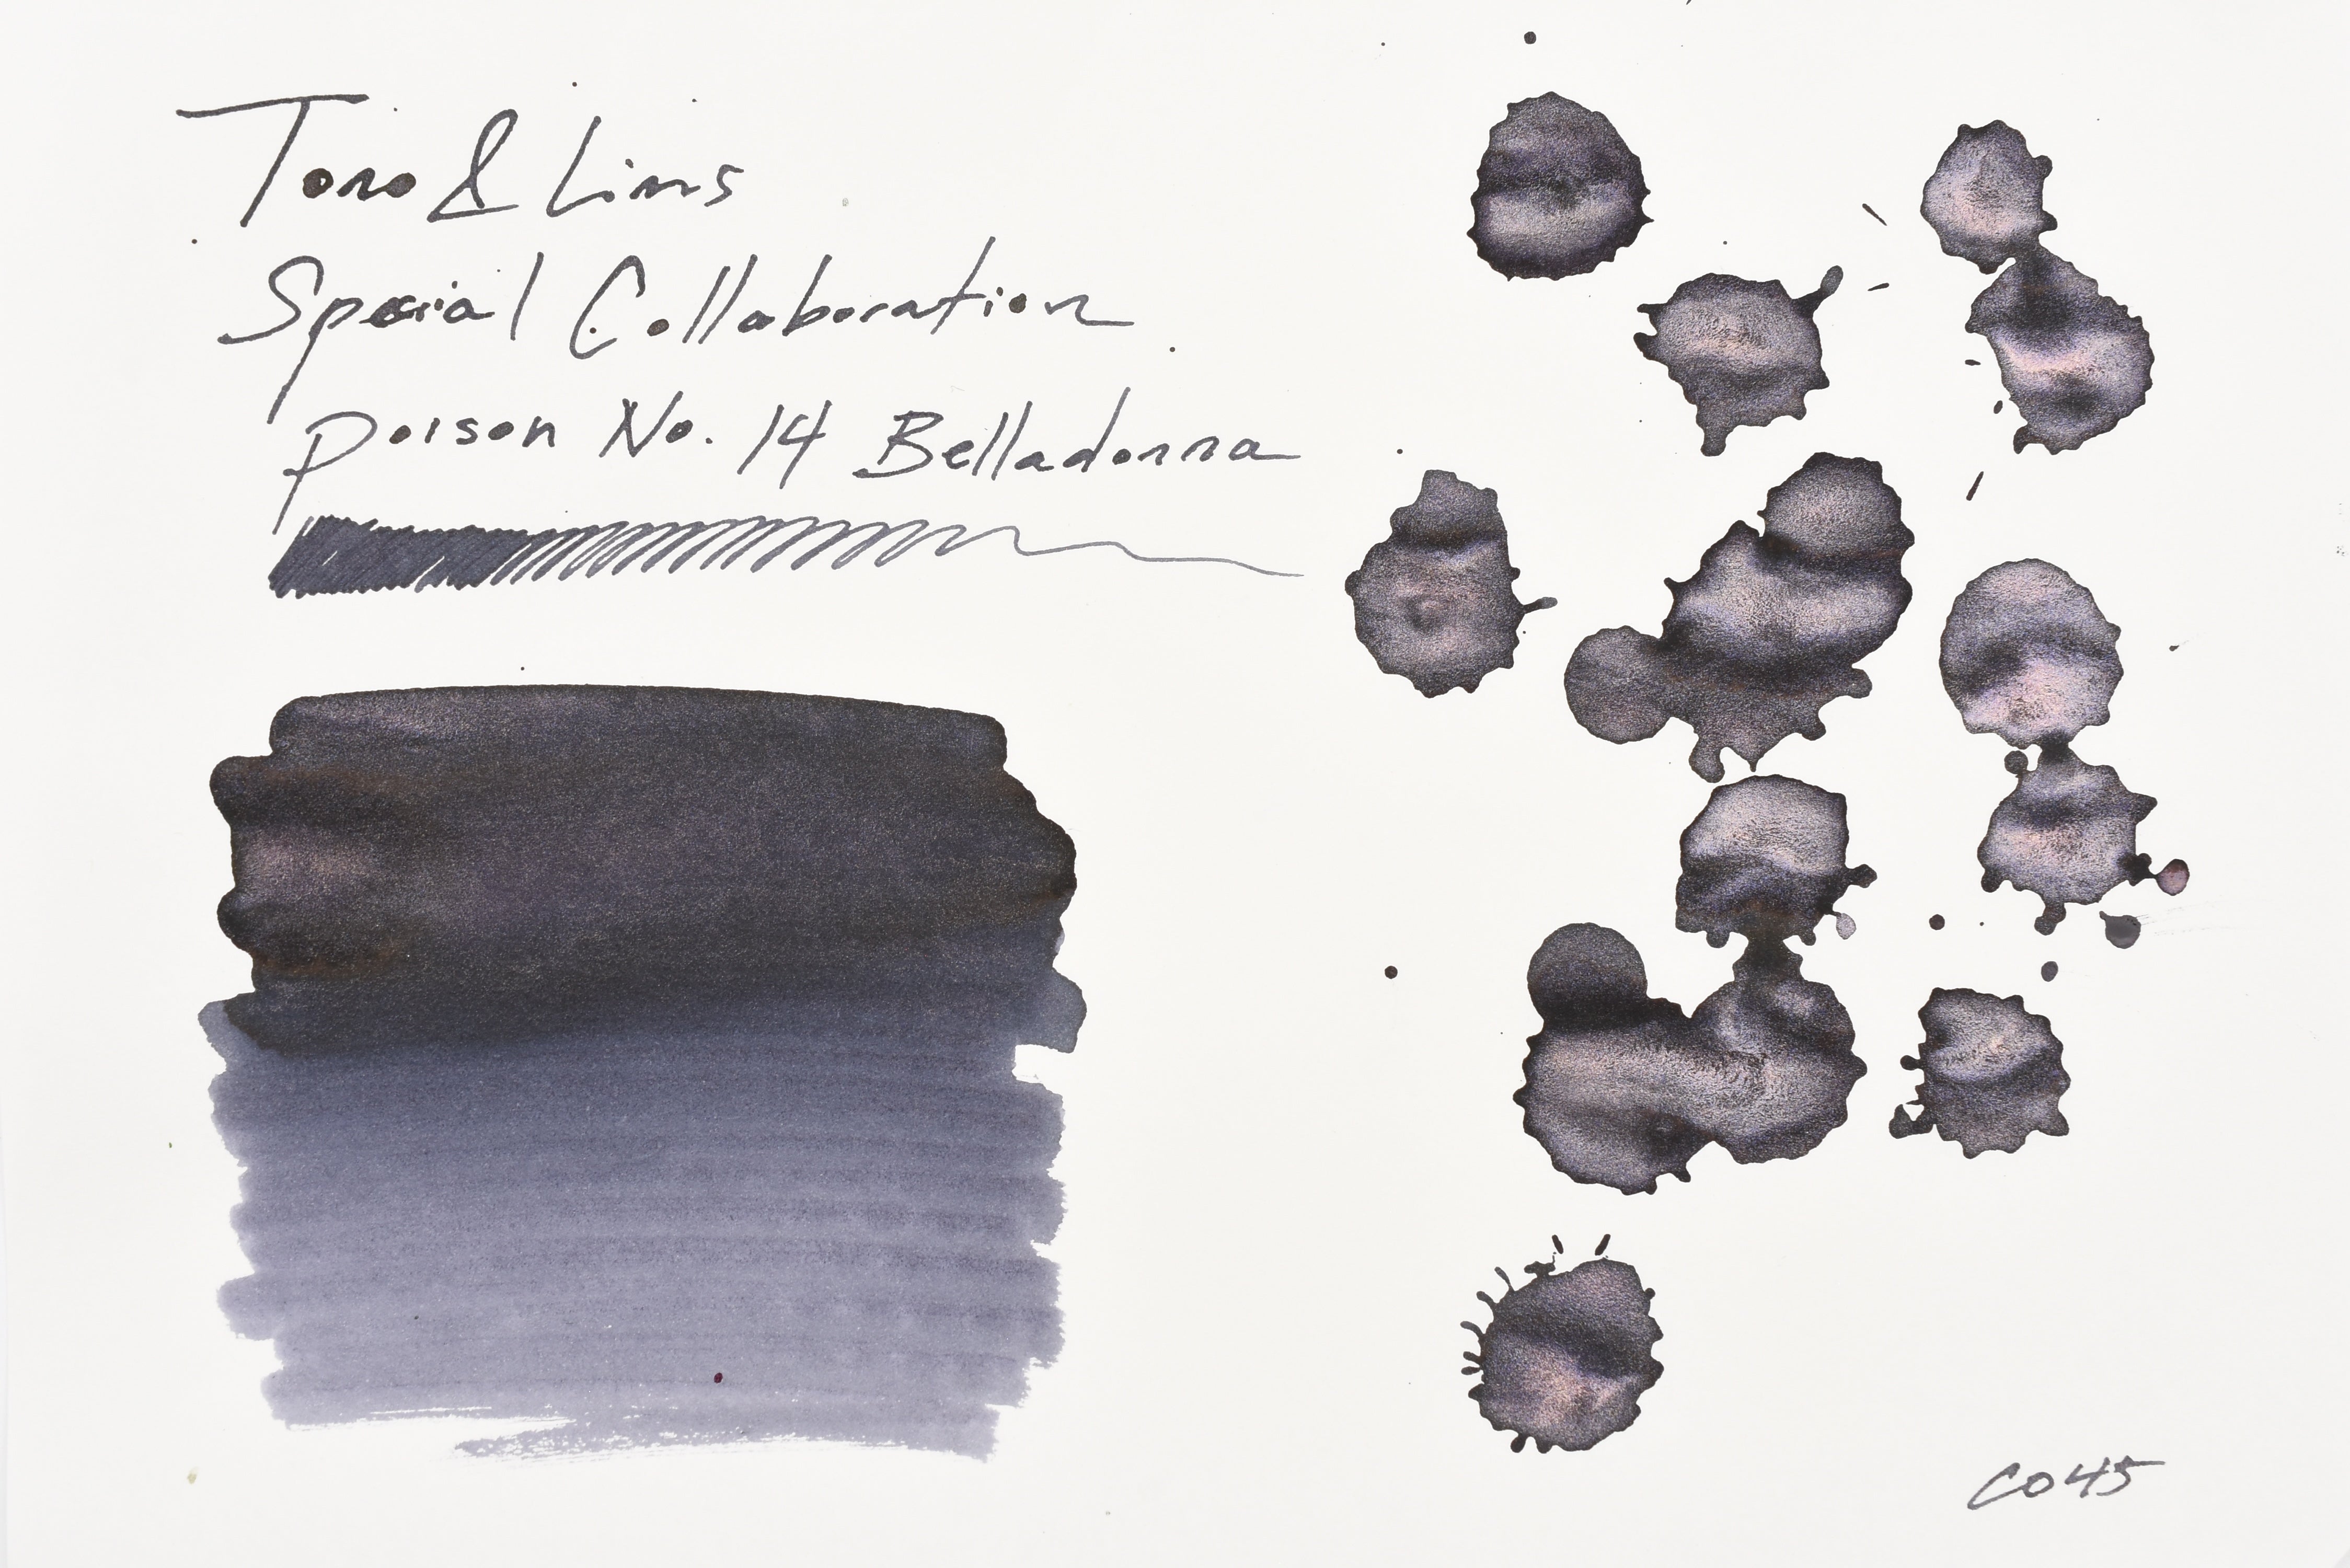 Tono & Lims
Special Collaboration
Poison No. 14 Belladonna
CO45